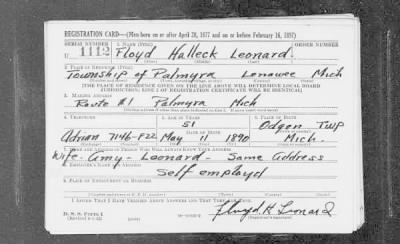 REGISTRATION CARD—(Men born on or after April 28, 1877 and on or before February 16, 1897)
SERIAL NUMBER 1. NAME (Print) ORDER NUMBER
U 1112 Floyd Halleck Leonard
2. PLACE OF RESIDENCE (Print)
Township of Palmyra Lenawee Mich
[THE PLACE OF RESIDENCE GIVEN ON THE LINE ABOVE WILL DETERMINE LOCAL BOARD
JURISDICTION; LINE 2 OF REGISTRATION CERTIFICATE WILL BE IDENTICAL]
3. MAILING ADDRESS
Route #1 Palmyra Mich
4. TELEPHONE 5. AGE IN YEARS 6. PLACE OF BIRTH
51 Odgen Twp
DATE OF BIRTH
Adrian 7146-F22 May 11 1890 Mich.
7. NAME AND ADDRESS OF PERSON WHO WILL ALWAYS KNOW YOUR ADDRESS
Wife- Amy- Leonard- Same Address
8. EMPLOYER'S NAME AND ADDRESS
Self employd
9. PLACE OF EMPLOYMENT OR BUSINESS
I AFFIRM THAT I HAVE VERIFIED ABOVE ANSWERS AND THAT THEY ARE TRUE.
D. S. S. Form 1
Floyd H Leonard